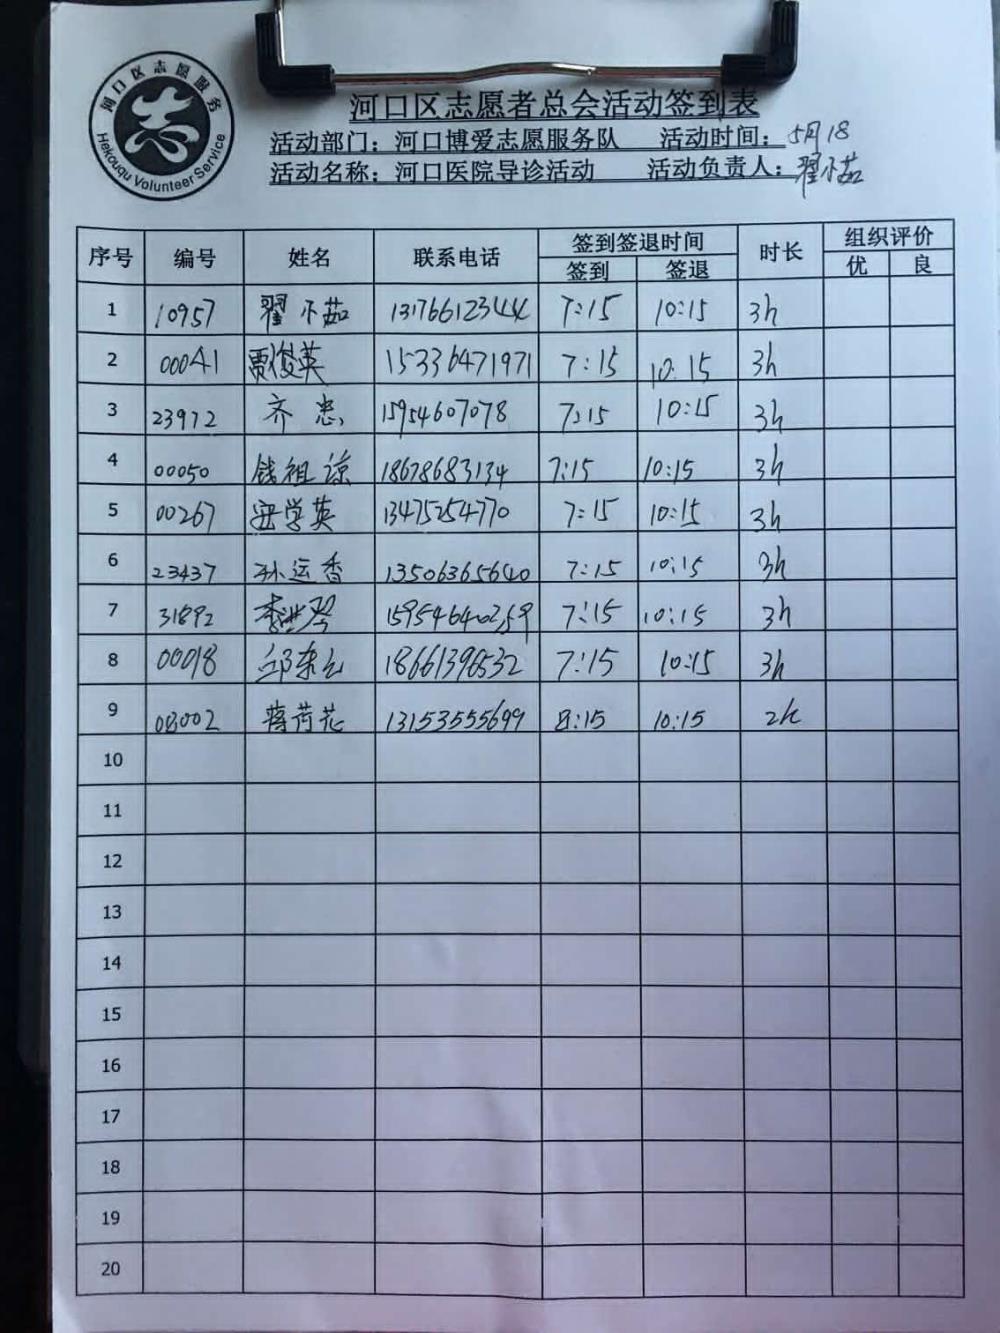 河口区志愿服务
Hekouqu Volunteer Service
河口区志愿者总会活动签到表
活动部门：河口博爱志愿服务队 活动时间：5月18
活动名称：河口医院导诊活动 活动负责人：翟小茹
序号 编号 姓名 联系电话 签到签退时间 时长 组织评价
签到 签退 优 良
1 10957 翟小茹 13176612344 7:15 10:15 3h
2 00041 贾俊英 15336471971 7:15 10:15 3h
3 23972 齐忠 15954607078 7:15 10:15 3h
4 00050 钱祖谅 18678683134 7:15 10:15 3h
5 00267 安学英 13475254770 7:15 10:15 3h
6 23437 孙运香 13506365640 7:15 10:15 3h
7 31892 李洪琴 7:15 10:15 3h
8 00018 邱 18661396532 7:15 10:15 3h
9 08002 蒋荷花 13153555699 8:15 10:15 2h
10
11
12
13
14
15
16
17
18
19
20